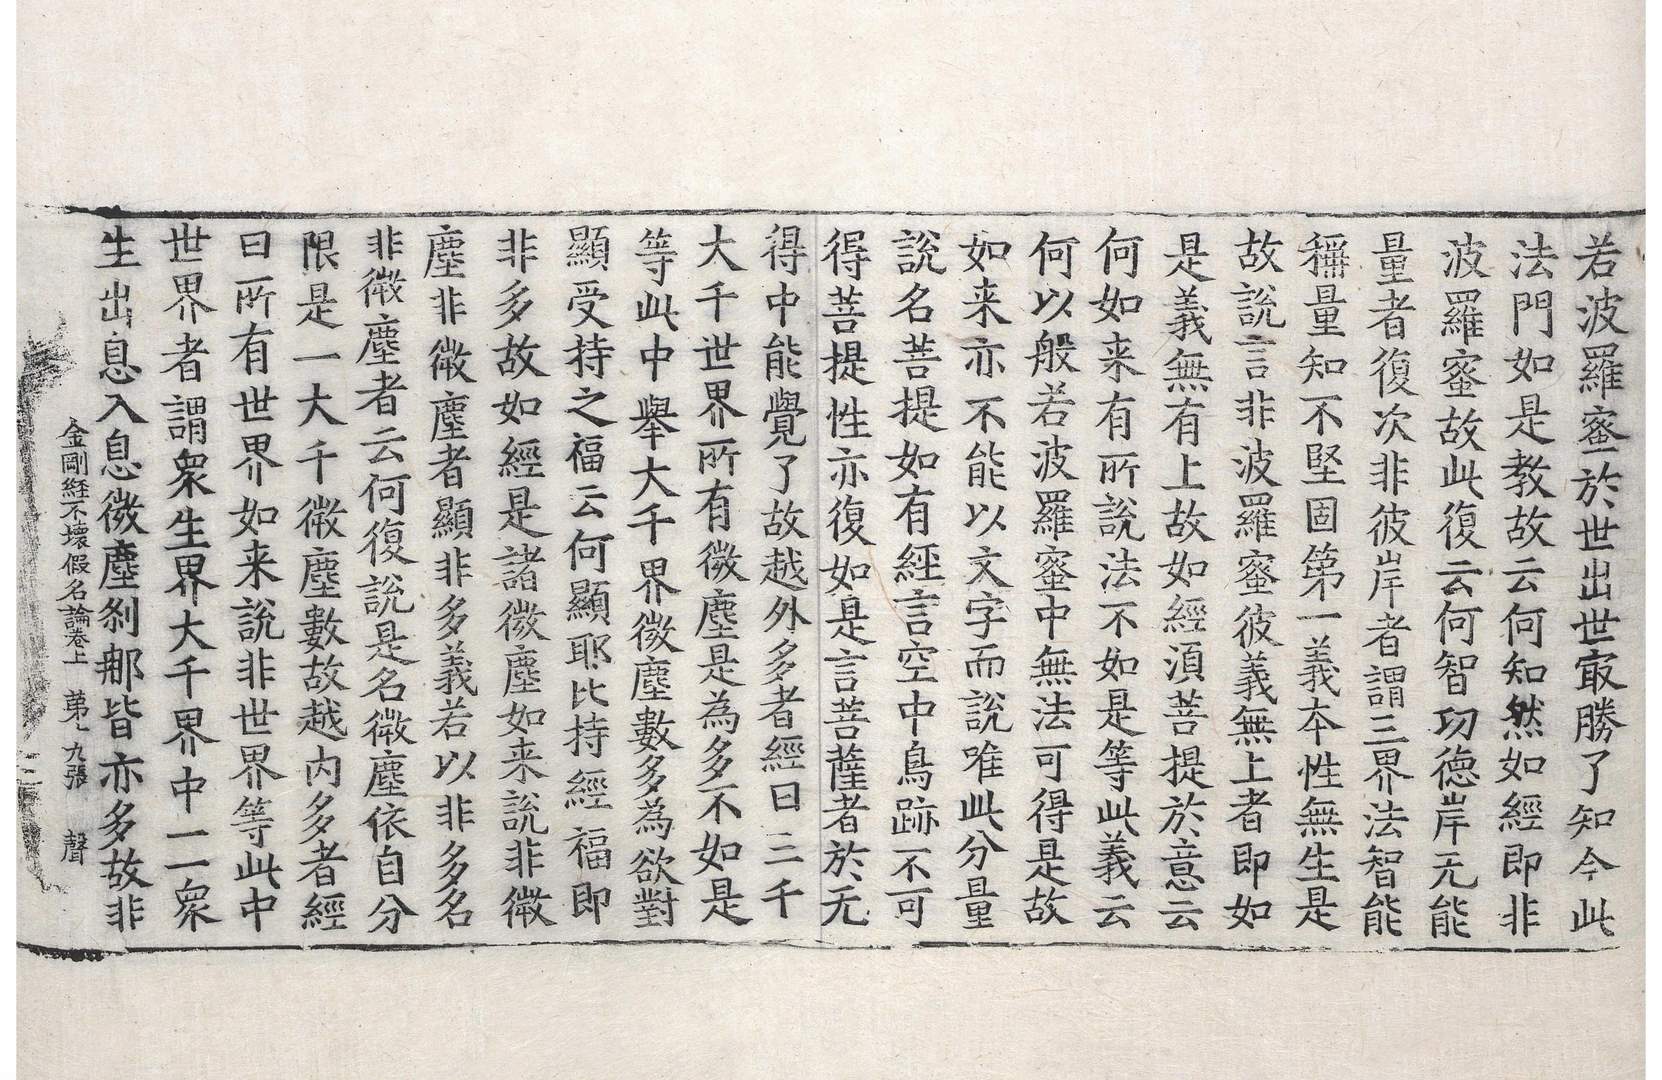 若波羅蜜於世出世㝡勝了知今此
法門如是教故云何知然如經即非
波羅蜜故此復云何智功德岸无能
量者復次非彼岸者謂三界法智能
稱量知不堅固第一義本性無生是
故說言非波羅蜜彼義無上者即如
是義無有上故如經湏菩提於意云
何如来有所說法不如是等此義云
何以般若波羅蜜中無法可得是故
如来亦不能以文字而說唯此分量
說名菩提如有經言空中鳥跡不可
得菩提性亦復如是言菩薩者於无
得中能覺了故越外多者經曰三千
大千世界所有微塵是為多不如是
等此中舉大千界微塵數多為欲對
顯受持之福云何顯耶比持經福即
非多故如經是諸微塵如来說非微
塵非微塵者顯非多義若以非多名
非微塵者云何復說是名微塵依自分
限是一大千微塵數故越內多者經
曰所有世界如来說非世界等此中
世界者謂衆生界大千界中一一衆
生出息入息微塵刹那皆亦多故非
金剛経不壞假名論卷上 苐九張 聲